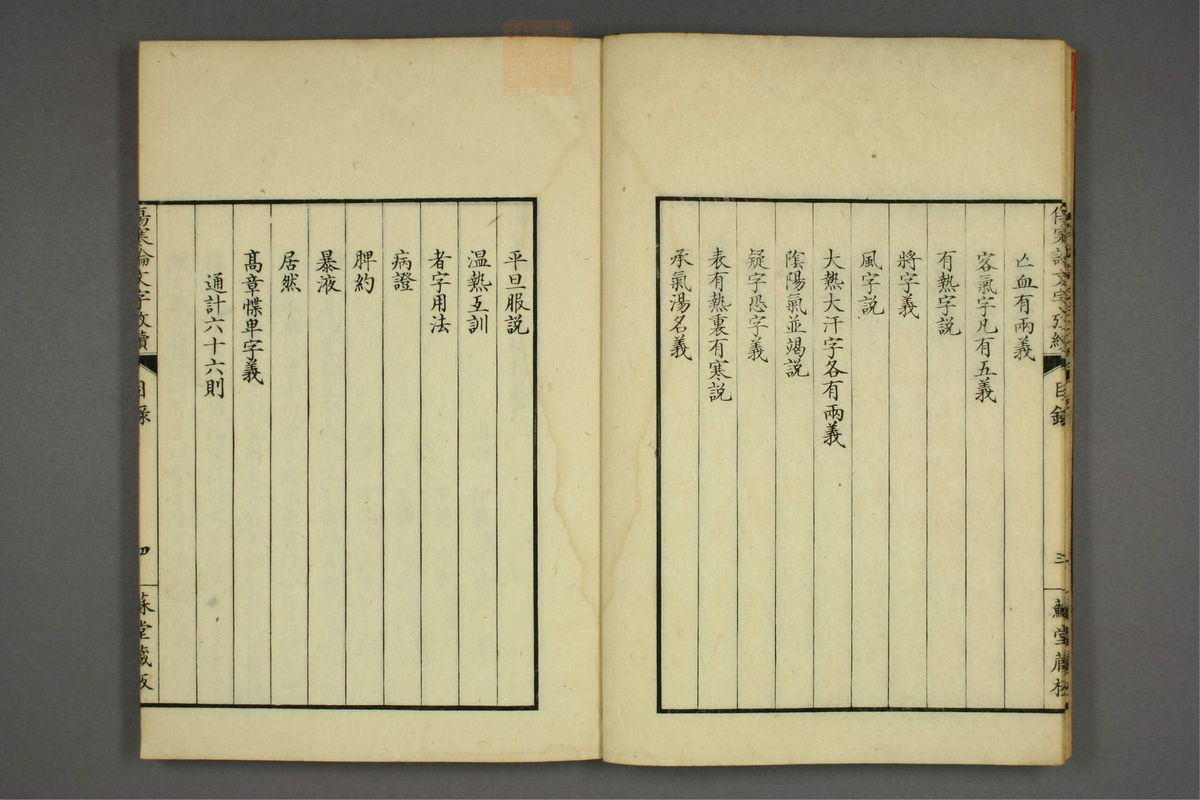 亡血有兩義
客氣字凡有五義
有熱字説
將字義
風字説
大熱大汗字各有兩義
陰陽氣並竭説
疑字恐字義
表有熱裏有寒説
承氣湯名義
目錄
三
平旦服説
温熱互訓
者字用法
病證
脾約
暴液
居然
髙章惵卑字義
通計六十六則
傷寒論文字攷續
目錄
四
堂藏板